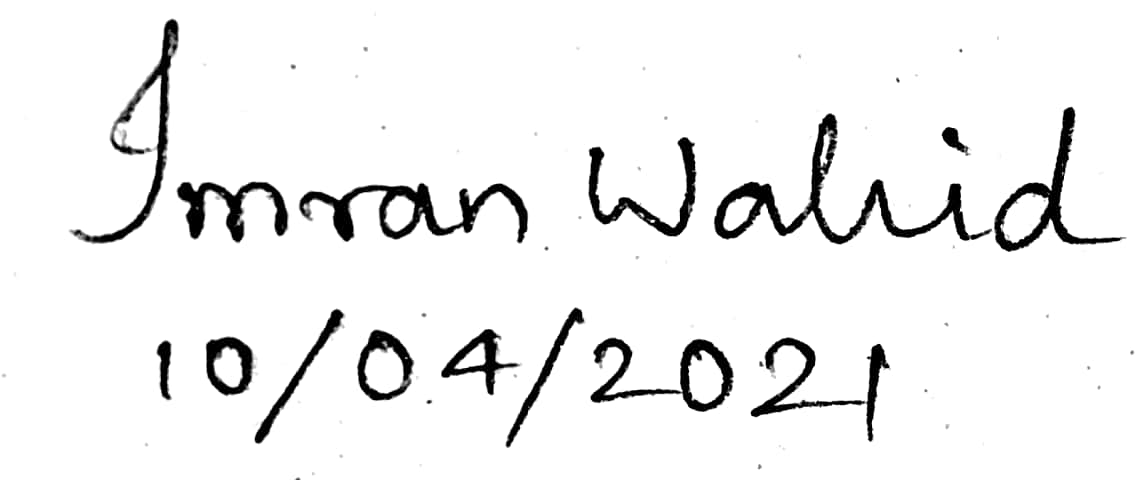 Imran Wahid
10/04/2021